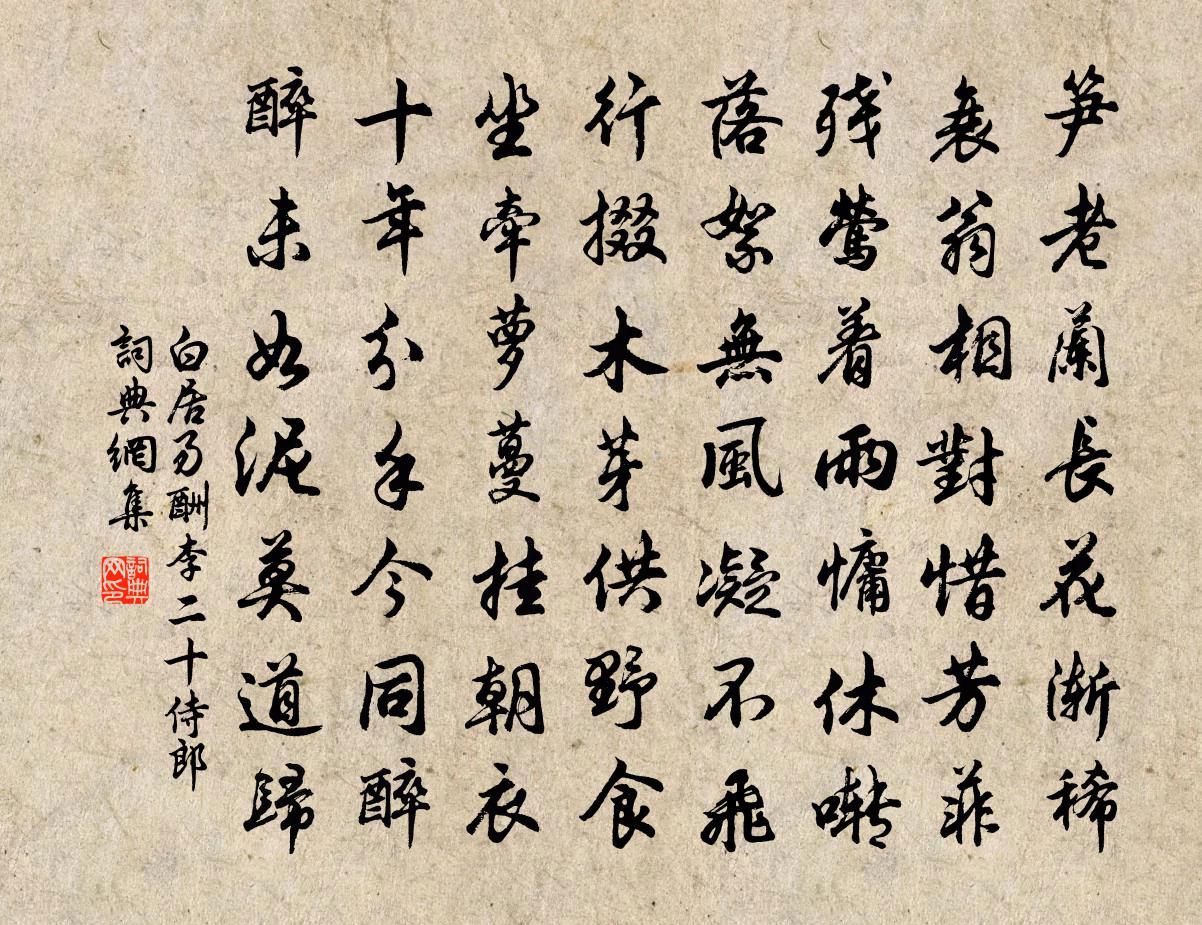 笋老蘭長花漸稀
衰翁相對惜芳菲
殘鶯着雨慵休囀
落絮無風凝不飛
行掇木芽供野食
坐牽蘿蔓挂朝衣
十年分手今同醉
醉未如泥莫道歸
白居易酬李二十侍郎
詞典網集
詞典網印